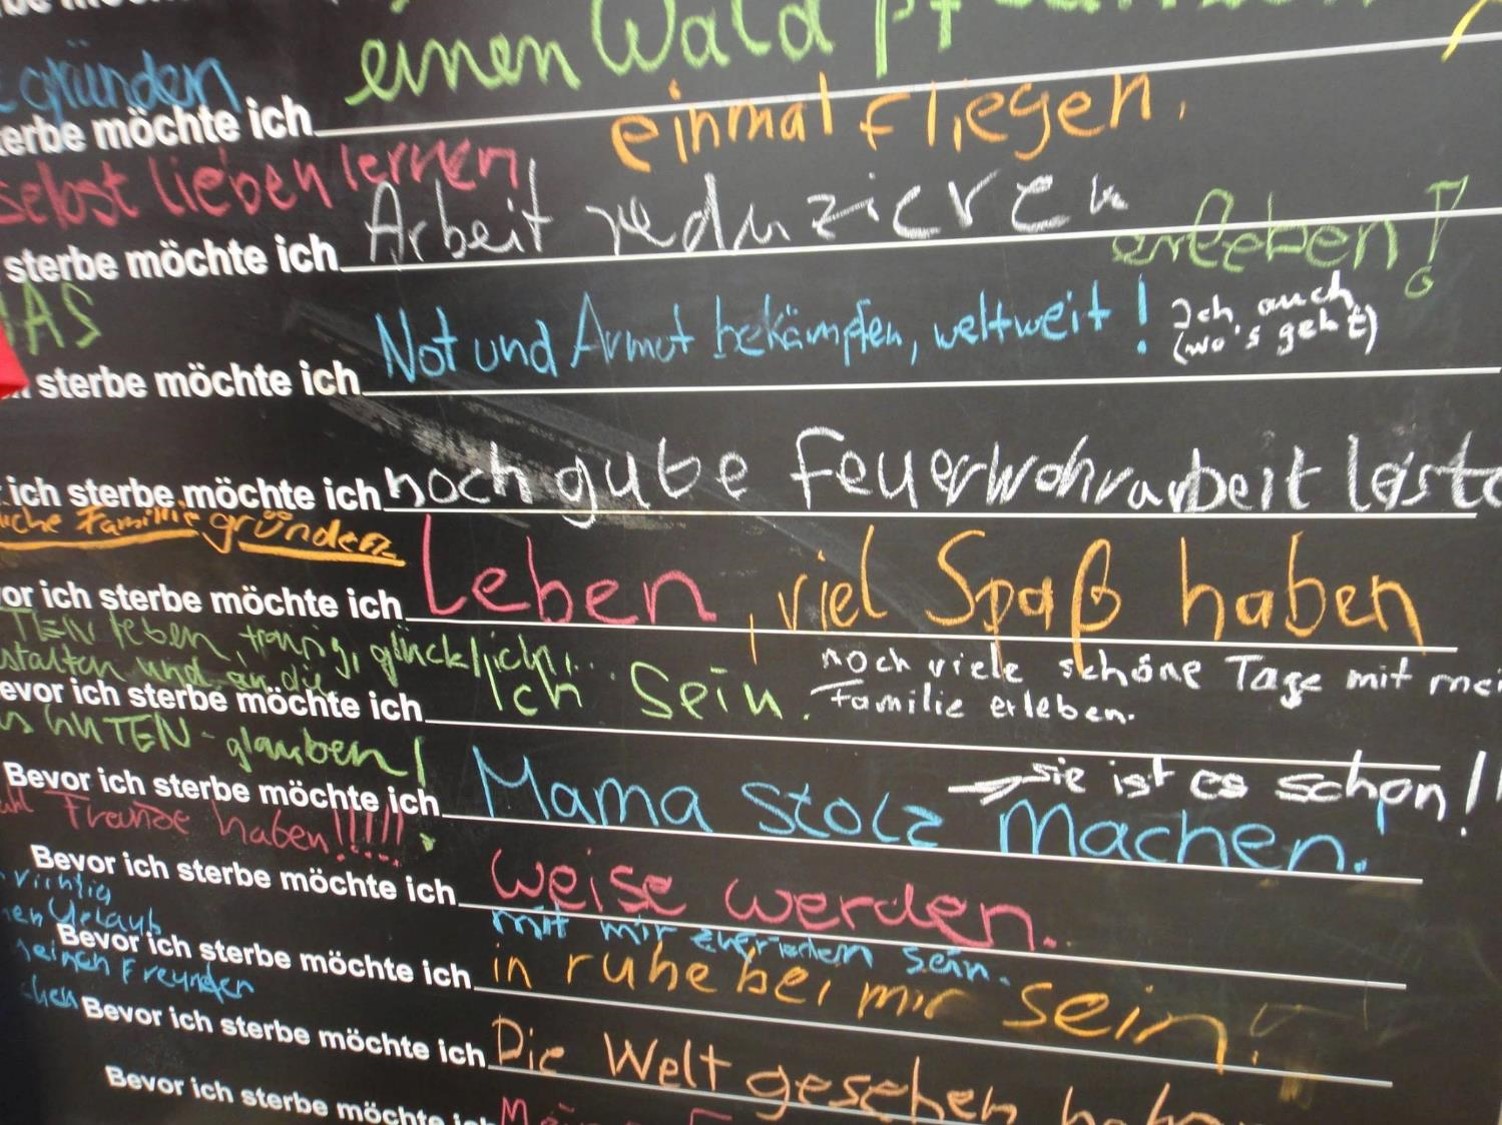 einen Wald
gründen
sterbe möchte ich einmal fliegen.
selbst lieben lernen
sterbe möchte ich Arbeit reduzieren
erleben!
DAS
sterbe möchte ich Not und Armut bekämpfen, weltweit! Ich auch
(wo's geht)
ich sterbe möchte ich noch gute Feuerwehrarbeit leiste
liche Familie gründen
vor ich sterbe möchte ich Leben, viel Spaß haben
leben, traurig, glücklich,..
stalten und an die
evor ich sterbe möchte ich Ich Sein. noch viele schöne Tage mit mei
Familie erleben.
GUTEN - glauben!
Bevor ich sterbe möchte ich Mama stolz machen! → sie ist es schon!!
Freunde haben!!!!!
Bevor ich sterbe möchte ich weise werden.
richtig
Urlaub
mit mir zufrieden sein.
Bevor ich sterbe möchte ich in ruhe bei mir sein.
meinen Freunden
chen
Bevor ich sterbe möchte ich Die Welt gesehen habe
Bevor ich sterbe möchte ich